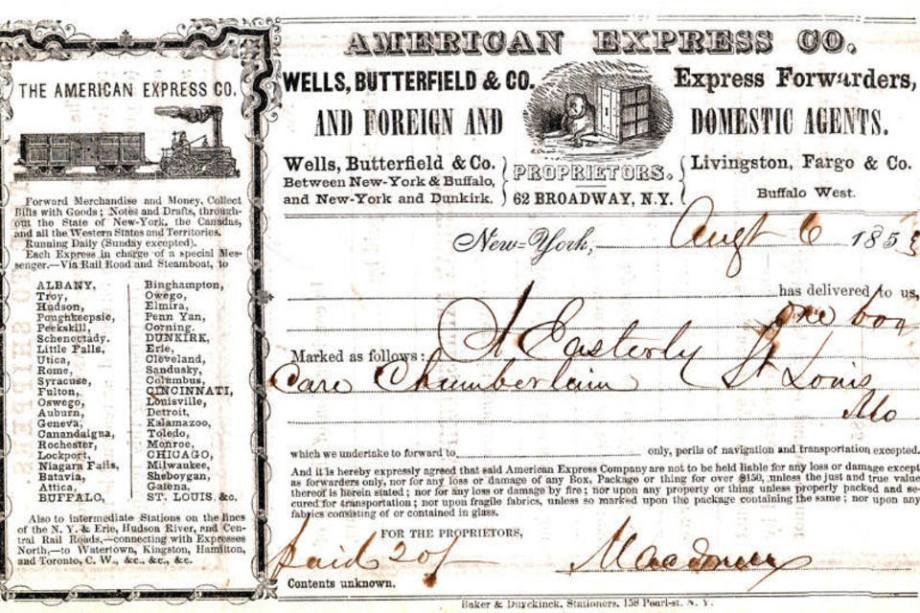 AMERICAN EXPRESS CO.
WELLS, BUTTERFIELD & CO. Express Forwarders,
AND FOREIGN AND DOMESTIC AGENTS.
Wells, Butterfield & Co.
Between New-York & Buffalo,
and New-York and Dunkirk.
PROPRIETORS.
62 BROADWAY, N.Y.
Livingston, Fargo & Co.
Buffalo West.
THE AMERICAN EXPRESS CO.
Forward Merchandise and Money, Collect
Bills with Goods; Notes and Drafts, through-
out the State of New-York, the Canadas,
and all the Western States and Territories.
Running Daily (Sunday excepted).
Each Express in charge of a special Mes-
senger.—Via Rail Road and Steamboat, to
ALBANY,
Troy,
Hudson,
Poughkeepsie,
Peekskill,
Schenectady.
Little Falls,
Utica,
Rome,
Syracuse,
Fulton,
Oswego,
Auburn,
Geneva,
Canandaigua,
Rochester,
Lockport,
Niagara Falls,
Batavia,
Attica,
BUFFALO,
Binghampton,
Owego,
Elmira,
Penn Yan,
Corning.
DUNKIRK,
Erie,
Cleveland,
Sandusky,
Columbus,
CINCINNATI,
Louisville,
Detroit,
Kalamazoo,
Toledo,
Monroe,
CHICAGO,
Milwaukee,
Sheboygan,
Galena,
ST. LOUIS, &c.
Also to intermediate Stations on the lines
of the N. Y. & Erie, Hudson River, and Cen-
tral Rail Roads,—connecting with Expresses
North,—to Watertown, Kingston, Hamilton,
and Toronto, C. W., &c., &c., &c.
New-York, Augt 6 185
has delivered to us,
one box
Marked as follows: A Easterly
Care Chamberlain St Louis
Mo
which we undertake to forward to only, perils of navigation and transportation excepted.
And it is hereby expressly agreed that said American Express Company are not to be held liable for any loss or damage except
as forwarders only, nor for any loss or damage of any Box, Package or thing for over $150, unless the just and true value
thereof is herein stated; nor for any loss or damage by fire; nor upon any property or thing unless properly packed and se-
cured for transportation; nor upon fragile fabrics, unless so marked upon the package containing the same; nor upon any
fabrics consisting of or contained in glass.
FOR THE PROPRIETORS,
paid 20/
Contents unknown.
Baker & Duyckinck, Stationers, 158 Pearl-st. N. Y.